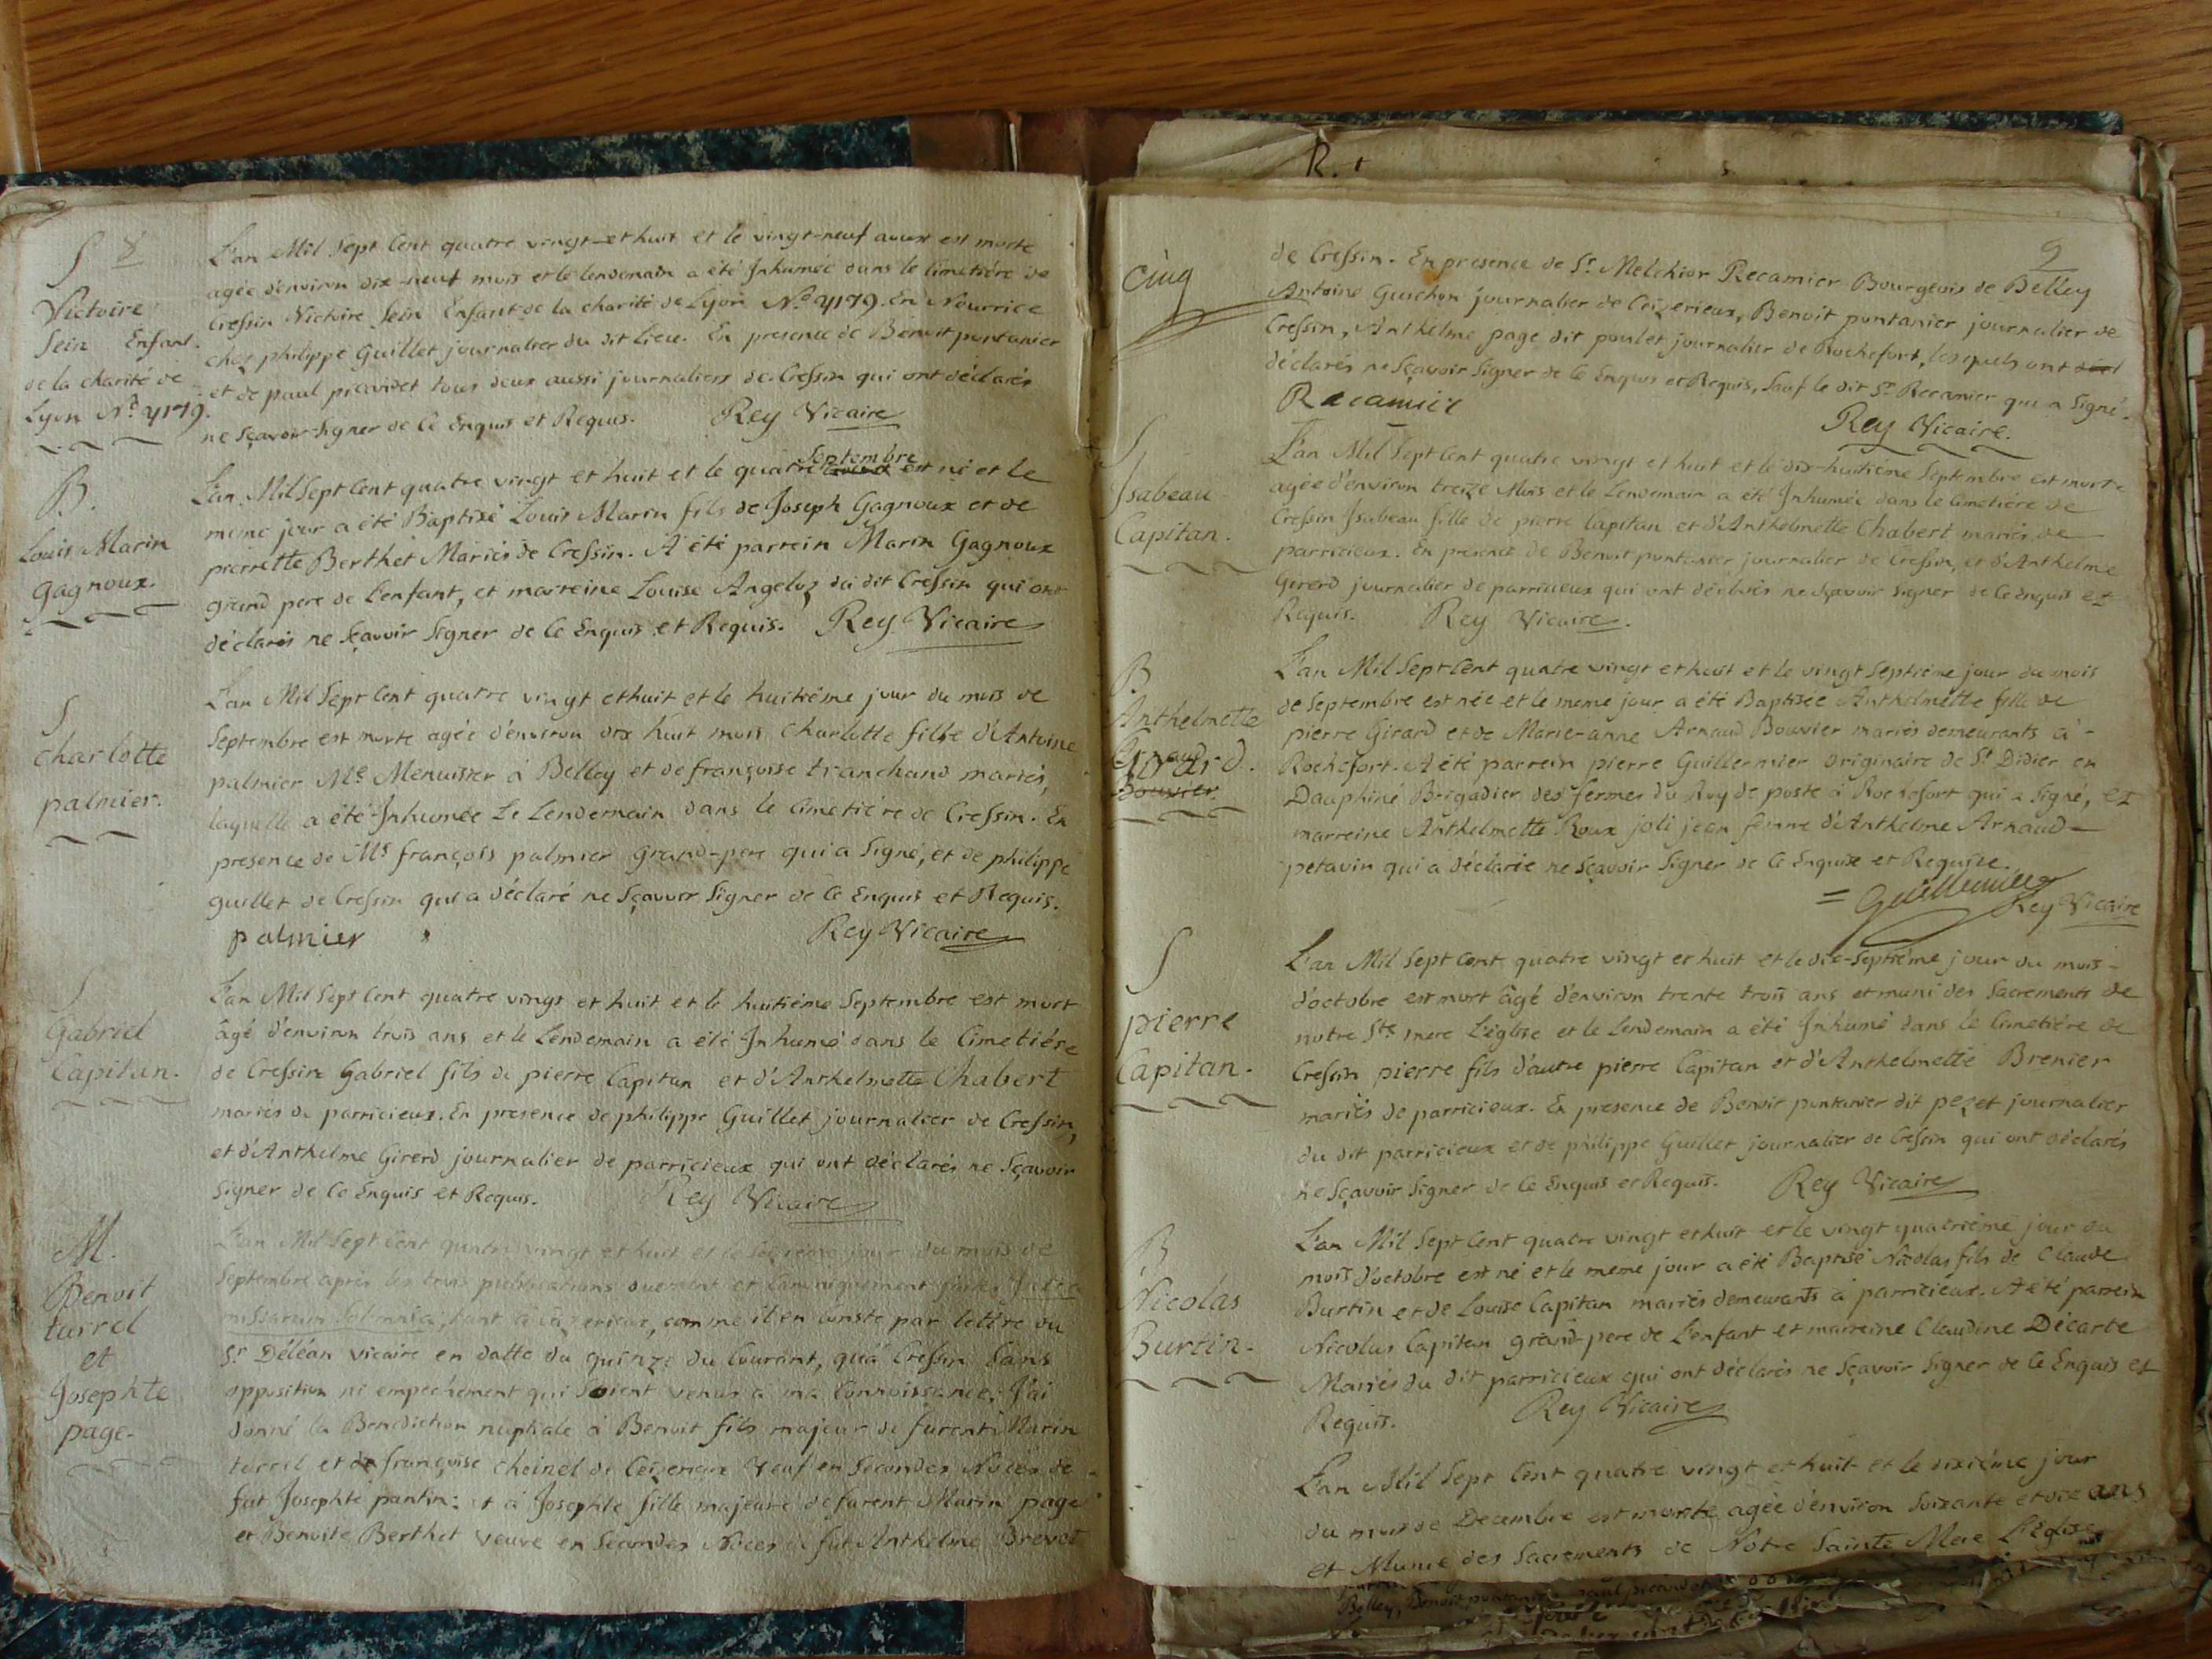 S 8
Victoire
Sein Enfant
de la charité de
Lyon N.º 4179.
L'an Mil Sept Cent quatre vingt et huit et le vingt-neuf aoust est morte
agée d'environ dix-neuf mois et le lendemain a été Inhumée dans le Cimetiére de
Cressin Victoire Sein Enfant de la charité de Lyon N.º 4179. En Nourrice
chez philippe Guillet journalier du dit lieu. En presence de Benoit pontanier
et de paul picardet tous deux aussi journaliers de Cressin qui ont déclarés
ne Sçavoir Signer de Ce Enquis et Requis. Rey Vicaire
B.
Louis Marin
Gagnoux.
Septembre
L'an Mil Sept Cent quatre vingt et huit et le quatre aoust est né et le
meme jour a été Baptisé Louis Marin fils de Joseph Gagnoux et de
pierrette Berthet Mariés de Cressin. A été parrein Marin Gagnoux
grand pere de L'enfant, et marreine Louise Angeloz du dit Cressin qui ont
déclarés ne Sçavoir Signer de Ce Enquis et Requis. Rey Vicaire
S
Charlotte
palmier.
L'an Mil Sept Cent quatre vingt et huit et le huitiéme jour du mois de
Septembre est morte agée d'environ dix huit mois Charlotte fille d'Antoine
palmier M.e Menuisier à Belley et de françoise tranchand mariés,
laquelle a été Inhumée Le Lendemain dans le Cimetiére de Cressin. En
presence de Ms françois palmier grand-pere qui a Signé, et de philippe
guillet de Cressin qui a déclaré ne Sçavoir Signer de Ce Enquis et Requis.
palmier Rey Vicaire
S
Gabriel
Capitan.
L'an Mil Sept Cent quatre vingt et huit et le huitiéme Septembre est mort
âgé d'environ trois ans et le Lendemain a été Inhumé dans le Cimetiére
de Cressin Gabriel fils de pierre Capitan et d'Anthelmette Chabert
mariés de parricieux. En presence de philippe Guillet journalier de Cressin,
et d'Anthelme Girerd journalier de parricieux qui ont déclarés ne Sçavoir
Signer de Ce Enquis et Requis. Rey Vicaire
M.
Benoit
turrel
et
Josephte
page.
L'an Mil Sept Cent quatre vingt et huit et le Seiziéme jour du mois de
Septembre aprés les trois publications duement et Canoniquement faites Inter
missarum Solemnia, tant à Ceizerieux, comme il en Conste par lettre du
Sr Déléan vicaire en datte du quinze du Courant, qu'a Cressin Sans
opposition ni empechement qui Soient venus à ma Connoissance; J'ai
donné la Benediction nuptiale à Benoit fils majeur de furent Marin
turrel et de françoise Cheinel de Ceizerieux Veuf en Secondes Nôces de
fut Josephte pantin; et à Josephte fille majeure de furent Marin page
et Benoite Berthet veuve en Secondes Nôces de fut Anthelme Brevet
R.
9
cinq
de Cressin. En presence de Sr. Melchior Recamier Bourgeois de Belley
Antoine Guichon journalier de Ceizerieux, Benoit pontanier journalier de
Cressin, Anthelme page dit poulet journalier de Rochefort, lesquels ont
déclarés ne Sçavoir Signer de Ce Enquis et Requis, Sauf le dit Sr Recamier qui a Signé.
Recamier
Rey Vicaire.
S
Isabeau
Capitan.
L'an Mil Sept Cent quatre vingt et huit et le dix-huitiéme Septembre est morte
agée d'environ treize Mois et le Lendemain a été Inhumée dans le Cimetiére de
Cressin Isabeau fille de pierre Capitan et d'Anthelmette Chabert mariés de
parricieux. En presence de Benoit pontanier journalier de Cressin, et d'Anthelme
Girerd journalier de parricieux qui ont déclarés ne Sçavoir Signer de Ce Enquis et
Requis. Rey Vicaire.
B
Anthelmette
Girard.
Bouvier.
L'an Mil Sept Cent quatre vingt et huit et le vingt Septiéme jour du mois
de Septembre est née et le meme jour a été Baptisée Anthelmette fille de
pierre Girard et de Marie-anne Arnaud Bouvier mariés demeurants à -
Rochefort. A été parrein pierre Guillermier originaire de St Didier en
Dauphiné Brigadier des fermes du Roy de poste à Rochefort qui a Signé, et
marreine Anthelmette Roux joli jean femme d'Anthelme Arnaud -
petavin qui a déclarée ne Sçavoir Signer de Ce Enquise et Requise.
= Guillermier
Rey Vicaire
S
pierre
Capitan.
L'an Mil Sept Cent quatre vingt et huit et le dix-Septiéme jour du mois -
d'octobre est mort âgé d'environ trente trois ans et muni des Sacrements de
notre Ste mere L'église et le Lendemain a été Inhumé dans le Cimetiére de
Cressin pierre fils d'autre pierre Capitan et d'Anthelmette Brenier
mariés de parricieux. En presence de Benoit pontanier dit pezet journalier
du dit parricieux et de philippe Guillet journalier de Cressin qui ont déclarés
ne Sçavoir Signer de Ce Enquis et Requis. Rey Vicaire
B
Nicolas
Burtin.
L'an Mil Sept Cent quatre vingt et huit et le vingt quatriéme jour du
mois d'octobre est né et le meme jour a été Baptisé Nicolas fils de Claude
Burtin et de Louise Capitan mariés demeurants à parricieux. A été parrein
Nicolas Capitan grand-pere de L'enfant et marreine Claudine Décarte
Mariés du dit parricieux qui ont déclarés ne Sçavoir Signer de Ce Enquis et
Requis. Rey Vicaire
L'an Mil Sept Cent quatre vingt et huit et le dixiéme jour
du mois de Decembre est morte agée d'environ Soixante et dix ans
et Munie des Sacrements de Notre Sainte Mere L'Eglise
Belley, Benoit pontanier paul picardet